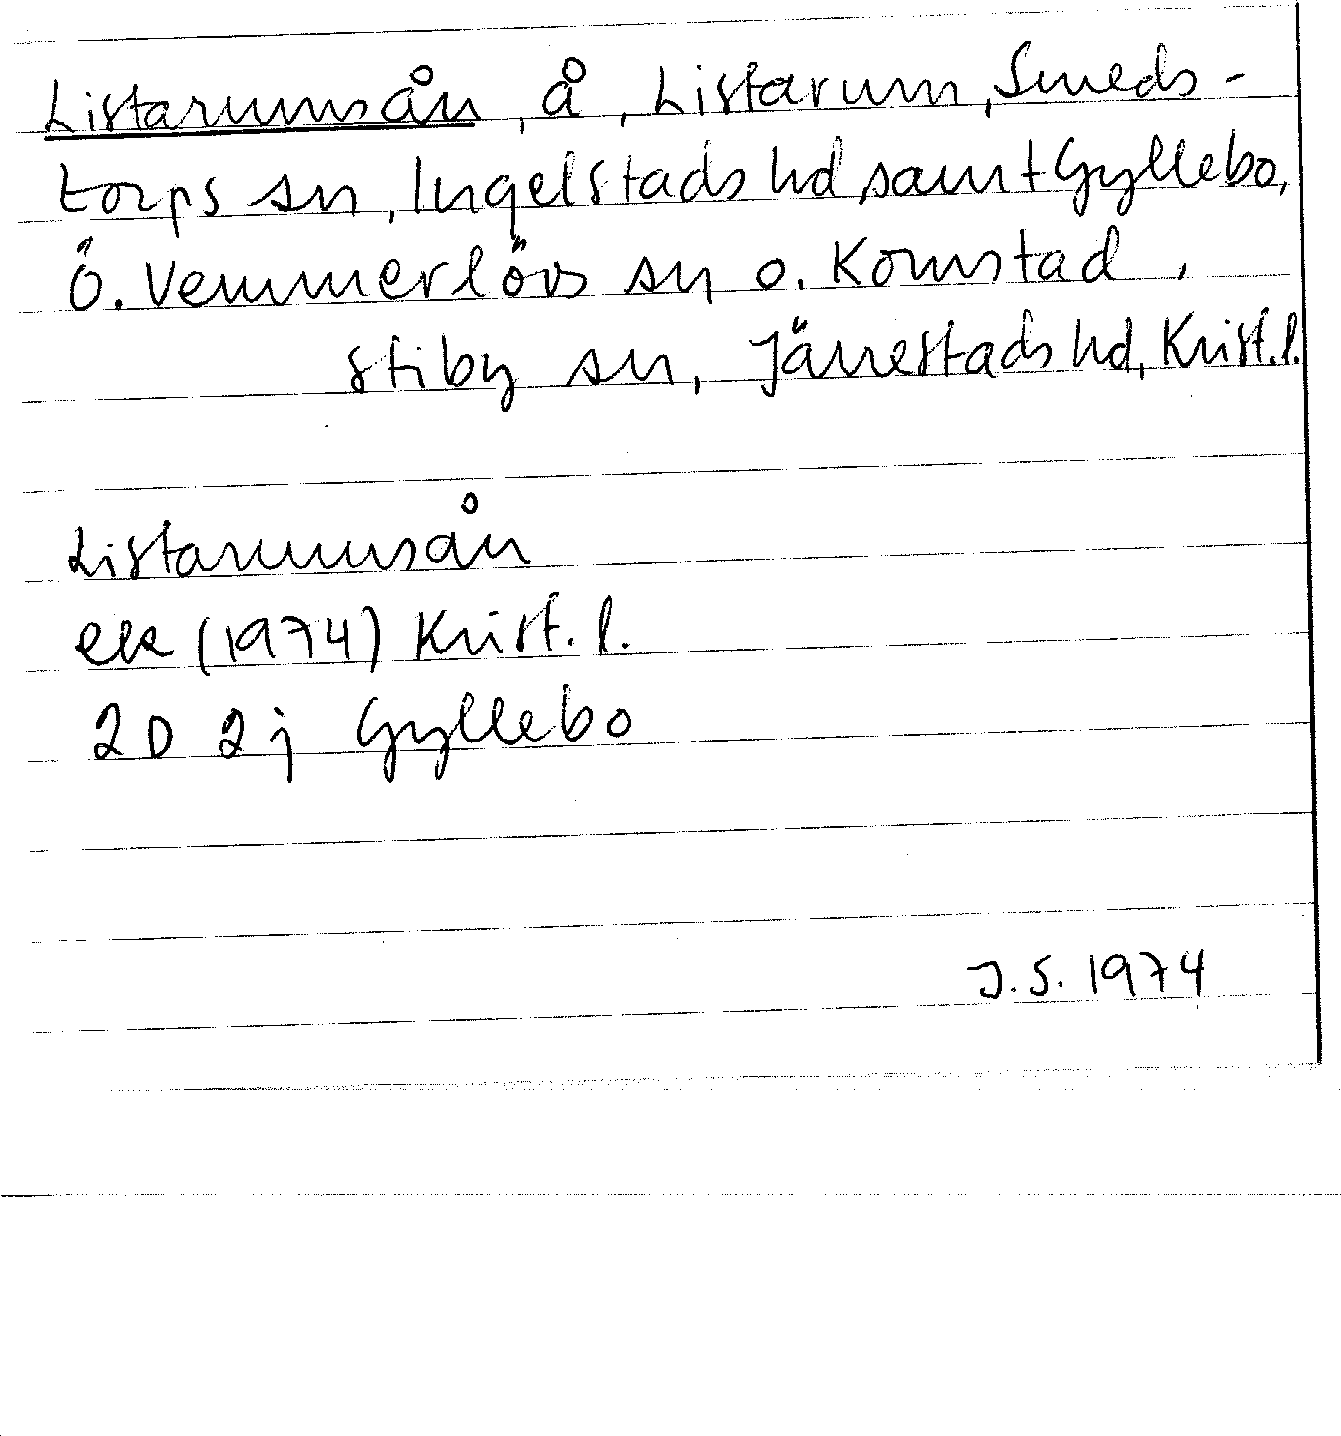 Listarumsån, å, Listarum, Smeds-
torps sn, Ingelstads hd samt Gyllebo,
Ö. Vemmerlövs sn o. Komstad,
Stiby sn, Järrestads hd, Krist. l.
Listarumsån
ek (1974) Krist. l.
2D 2j Gyllebo
J. S. 1974